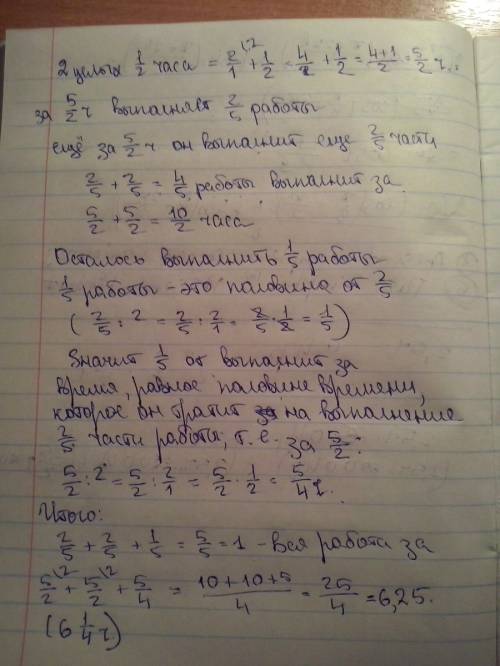 2 целых 1/2 часа = 2/1\2 + 1/2 = 4/2 + 1/2 = 4+1/2 = 5/2 ч.
за 5/2 ч выполняет 2/5 работы
ещё за 5/2 ч он выполнит еще 2/5 части
2/5 + 2/5 = 4/5 работы выполнит за
5/2 + 5/2 = 10/2 часа
Осталось выполнить 1/5 работы
1/5 работы - это половина от 2/5
( 2/5 : 2 = 2/5 : 2/1 = 2/5 · 1/2 = 1/5 )
Значит 1/5 он выполнит за
время, равное половине времени,
которое он тратит на выполнение
2/5 части работы, т. е. за 5/2 :
5/2 : 2 = 5/2 : 2/1 = 5/2 · 1/2 = 5/4 ч.
Итого:
2/5 + 2/5 + 1/5 = 5/5 = 1 - вся работа за
5/2\2 + 5/2\2 + 5/4 = 10+10+5/4 = 25/4 = 6,25.
(6 1/4 ч)